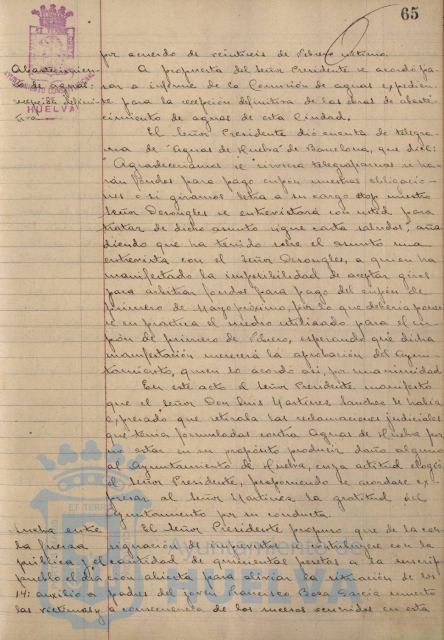 65
por acuerdo de veintiseis de Febrero último.
Abastecimien-
to de aguas
recepción definiti-
va
HUELVA
A propuesta del Señor Presidente se acordó pa-
sar a informe de la Comisión de aguas expedien-
te para la recepción definitiva de las obras de abaste-
cimiento de aguas de esta Ciudad.
El Señor Presidente dió cuenta de telegra-
ma de "Aguas de Huelva" de Barcelona, que dice:
"Agradeceriamos se sirviera telegrafiarnos se ha-
rán fondos para pago cupón nuestras obligacio-
nes o si giramos letra a su cargo stop nuestro
Señor Desongles se entrevistará con usted para
tratar de dicho asunto sigue carta saludos, aña
diendo que ha tenido sobre el asunto una
entrevista con el Señor Desongles, a quien ha
manifestado la imposibilidad de aceptar giros
para arbitrar fondos para pago del cupón de
primero de Mayo próximo, por lo que deberia poner
se en practica el medio utilizado para el cu-
pón de primero de Febrero, esperando que dicha
manifestación merecerá la aprobación del Ayun-
tamiento, quien lo acordó así, por unanimidad
En este acto el Señor Presidente manifestó
que el señor Don Luis Martinez Sanchez le habia
expresado que retiraba las reclamaciones judiciales
que tenia formuladas contra Aguas de Huelva por
no estar en su propósito producir daño alguno
al Ayuntamiento de Huelva, cuya actitud elogió
el Señor Presidente, proponiendo se acordase ex-
presar al Señor Martinez la gratitud del
Ayuntamiento por su conducta.
Lucha entre
la fuerza
pública y el
pueblo el dia
14: auxilio a
las victimas y
El Señor Presidente propuso que de la con
signación de imprevistos se contribuyese con la
cantidad de quinientas pesetas a la suscrip
ción abierta para aliviar la situación de los
padres del joven Francisco Boza Garcia muerto
a consecuencia de los sucesos ocurridos en esta
Ayuntamiento de
HUELVA